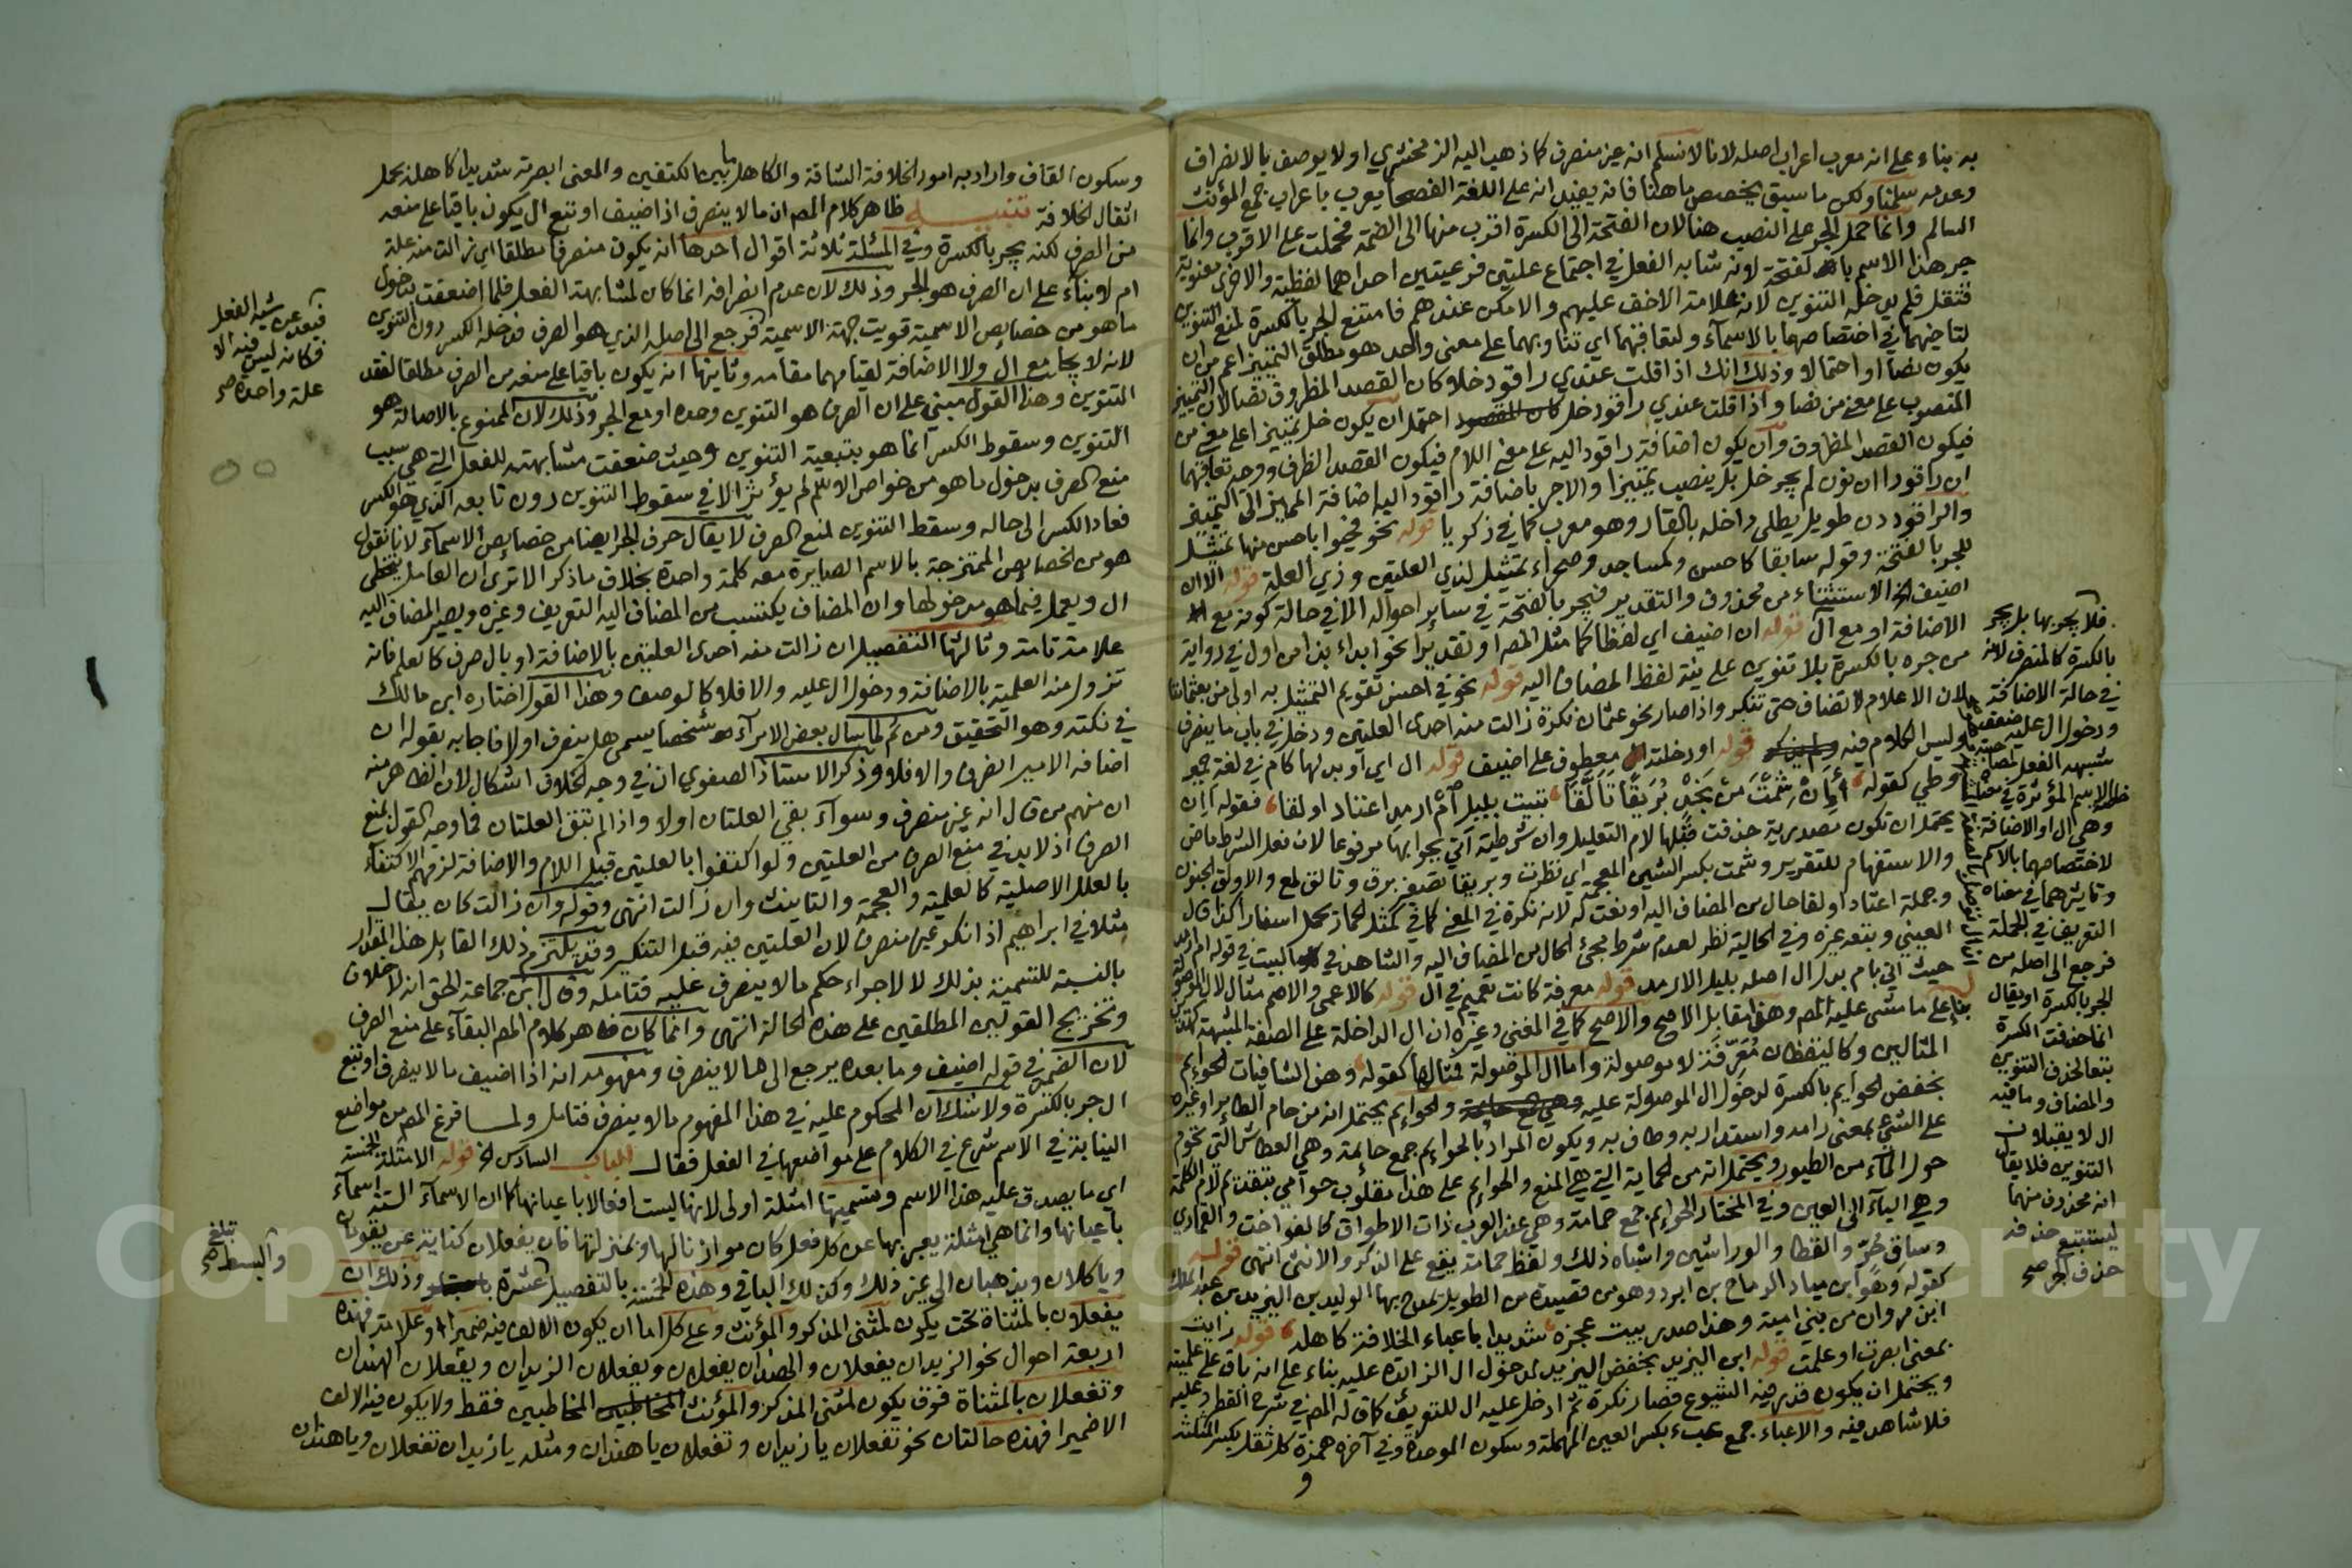 به بناء على انه معرب اعراب اصله لانا لا نسلم انه غير منصرف كما ذهب اليه الزمخشري او لا يوصف بالانصراف
وعدمه سلمنا ولكن ما سبق يخصص ما هنا فانه يفيد انه على اللغة الفصحى يعرب باعراب جمع المؤنث
السالم وانما حمل الجر على النصب هنا لان الفتحة الى الكسرة اقرب منها الى الضمة فحملت على الاقرب وانما
جر هذا الاسم بالفتحة لانه شابه الفعل في اجتماع علتين فرعيتين احداهما لفظية والاخرى معنوية
فثقل فلم يدخله التنوين لانه علامة الاخف عليهم والامكن عندهم فامتنع الجر بالكسرة لمنع التنوين
لتآخيهما في اختصاصهما بالاسماء ولتعاقبهما اي تناوبهما على معنى واحد هو مطلق التمييز اعم من ان
يكون نصا او احتمالا وذلك انك اذا قلت عندي راقود خلا كان القصد المظروف نصا لان التمييز
المنصوب على معنى من نصا واذا قلت عندي راقود خل احتمل ان يكون خل تمييزا على معنى من
فيكون القصد المظروف وان يكون اضافة راقود اليه على معنى اللام فيكون القصد الظرف ووجه تعاقبهما
ان راقودا ان نون لم يجر خل بل ينصب تمييزا والا جر باضافة راقود اليه اضافة المميز الى التمييز
والراقود دن طويل يطلى داخله بالقار وهو معرب كما في ذكريا قوله نحو فحيوا باحسن منها تمثيل
للجر بالفتحة وقوله سابقا كاحسن وكمساجد وصحراء تمثيل لذي العلتين وذي العلة قوله الا ان
اضيف الخ الاستثناء من محذوف والتقدير فيجر بالفتحة في ساير احواله الا في حالة كونه مع
الاضافة او مع ال قوله ان اضيف اي لفظا كما مثل المص او تقديرا نحو ابداء بذا من اول في رواية
من جره بالكسرة بلا تنوين على نية لفظ المضاف اليه قوله نحو في احسن تقويم التمثيل به اولى من بعثماننا
لان الاعلام لا تضاف حتى تنكر واذا صار نحو عثمان نكرة زالت منه احدى العلتين ودخل في باب ما ينصرف
وليس الكلام فيه قوله او دخلته ال معطوف على اضيف قوله ال اي او بدلها كام في لغة حمير
وطي كقوله أإن شمت من نجد بريقا تألقا تبيت بليل ام ارمد اعتاد اولقا فقوله أإن
يحتمل ان تكون مصدرية حذفت قبلها لام التعليل وان شرطية اتي بجوابها مرفوعا لان فعل الشرط ماض
والاستفهام للتقرير وشمت بكسر الشين المعجمة اي نظرت وبريقا تصغير برق وتالق لمع والاولق الجنون
وجملة اعتاد اولقا حال من المضاف اليه او نعت له لانه نكرة في المعنى كما في كمثل الحمار يحمل اسفارا كذا قال
العيني وتبعه غيره وفي الحالية نظر لعدم شرط مجئ الحال من المضاف اليه والشاهد في البيت في قوله ام ارمد
حيث اتي بام بدل ال اصله بليل الارمد قوله معرفة كانت تعميم في ال قوله كالاعمى والاصم مثال لال الموصولة
بناء على ما مشى عليه المص وهذا مقابل الاصح والاصح كما في المغني وغيره ان ال الداخلة على الصفة المشبهة كهذين
المثالين وكاليقظان معرفة لا موصولة واما ال الموصولة فمثالها كقوله وهن الشافيات الحوايم
بخفض الحوايم بالكسرة لدخول ال الموصولة عليه والحوايم يحتمل انه من حام الطاير او غيره
على الشئ بمعنى رامه واستدار به وطاف به ويكون المراد بالحوايم جمع حائمة وهي العطاش التي تحوم
حول المآء من الطيور ويحتمل انه من الحماية التي هي المنع والحوايم على هذا مقلوب حوامي بتقديم لام الكلمة
وهي اليآء الى العين وفي المختار الحوايم جمع حمامة وهي عند العرب ذات الاطواق كالفواخت والقماري
وساق حر والقطا والوراشين واشباه ذلك ولفظ حمامة يقع على الذكر والانثى انتهى قوله
كقوله وهو ابن ميادة الرماح بن ابرد وهو من قصيدة من الطويل يمدح بها الوليد بن اليزيد بن عبد الملك
ابن مروان من بني امية وهذا صدر بيت عجزه شديدا باعباء الخلافة كاهله قوله رايت
بمعنى ابصرت او علمت قوله ابن اليزيد بخفض اليزيد لدخول ال الزائدة عليه بناء على انه باق على علميته
ويحتمل ان يكون قدر فيه الشيوع فصار نكرة ثم ادخل عليه ال للتعريف كما قاله المص في شرح القطر وعليه
فلا شاهد فيه والاعباء جمع عبء بكسر العين المهملة وسكون الموحدة وفي آخره همزة كل ثقل بكسر المثلثة
و
فلا يجر بها بل يجر
بالكسرة كالمنصرف لانه
في حالة الاضافة
ودخول ال عليه ضعف
شبهه الفعل
وهي ال او الاضافة
لاختصاصهما بالاسم
وتاثيرهما في معناه
التعريف في الجملة
فرجع الى اصله من
الجر بالكسرة او يقال
انما حذفت الكسرة
تبعا لحذف التنوين
والمضاف وما فيه
ال لا يقبلان
التنوين فلا يقال
انه محذوف منهما
ليستتبع حذفه
حذف الجر صح
وسكون القاف واراد به امور الخلافة الشاقة والكاهل ما بين الكتفين والمعنى ابصرته شديدا كاهله بحمل
اثقال الخلافة تنبيه ظاهر كلام المص ان ما لا ينصرف اذا اضيف او تبع ال يكون باقيا على منعه
من الصرف لكنه يجر بالكسرة وفي المسئلة ثلاثة اقوال احدها انه يكون منصرفا مطلقا اي زالت منه علة
ام لا بناء على ان الصرف هو الجر وذلك لان عدم انصرافه انما كان لمشابهته الفعل فلما ضعفت بدخول
ما هو من خصايص الاسمية قويت جهة الاسمية فرجع الى اصله الذي هو الصرف فدخله الكسر دون التنوين
لانه لا يجامع ال ولا الاضافة لقيامهما مقامه وثانيها انه يكون باقيا على منعه من الصرف مطلقا لفقد
التنوين وهذا القول مبني على ان الصرف هو التنوين وحده او مع الجر وذلك لان الممنوع بالاصالة هو
التنوين وسقوط الكسر انما هو بتبعية التنوين وحيث ضعفت مشابهته للفعل التي هي سبب
منع الصرف بدخول ما هو من خواص الاسم لم يؤثر الا في سقوط التنوين دون تابعه الذي هو الكسر
فعاد الكسر الى حاله وسقط التنوين لمنع الصرف لا يقال حرف الجر ايضا من خصايص الاسمآء لانا نقول
هو من الخصايص الممتزجة بالاسم الصايرة معه كلمة واحدة بخلاف ما ذكر الا ترى ان العامل يتخطى
ال ويعمل فيما هو مدخولها وان المضاف يكتسب من المضاف اليه التعريف وغيره ويصير المضاف اليه
علامة تامة وثالثها التفصيل ان زالت منه احدى العلتين بالاضافة او بال صرف كالعلم فانه
تزول منه العلمية بالاضافة ودخول ال عليه والا فلا كالوصف وهذا القول اختاره ابن مالك
في نكته وهو التحقيق ومن ثم لما سال بعض الامرآء شخصا يسمى هل ينصرف او لا فاجابه بقوله ان
اضافه الامير انصرف والا فلا وذكر الاستاذ الصفوي ان في وجه الخلاف اشكال لان الظاهر منه
ان منهم من قال انه غير منصرف وسوآء بقي العلتان اولا واذا لم تبق العلتان فما وجه القول بمنع
الصرف اذ لا بد في منع الصرف من العلتين ولو اكتفوا بالعلتين قبل اللام والاضافة لزمهم الاكتفآء
بالعلل الاصلية كالعلمية والعجمة والتانيث وان زالت انتهى وقوله وان زالت كان يقال
مثلا في ابراهيم اذا نكر غير منصرف لان العلتين فيه قبل التنكير وقد يلتزم ذلك القايل هذا المقدار
بالنسبة للتسمية بذلك لا لاجراء حكم ما لا ينصرف عليه فتامله وقال ابن جماعة الحق انه لا خلاف
وتخريج القولين المطلقين على هذه الحالة انتهى وانما كان ظاهر كلام المص البقآء على منع الصرف
لان الضمير في قوله اضيف وما بعده يرجع الى ما لا ينصرف ومفهومه انه اذا اضيف ما لا ينصرف او تبع
ال جر بالكسرة ولا شك ان المحكوم عليه في هذا المفهوم ما لا ينصرف فتامل ولما فرغ المص من مواضع
النيابة في الاسم شرع في الكلام على مواضعها في الفعل فقال الباب السادس الخ قوله الامثلة الخمسة
اي ما يصدق عليه هذا الاسم وتسميتها امثلة اولى لانها ليست افعالا باعيانها كما ان الاسمآء الستة اسمآء
باعيانها وانما هي امثلة يعبر بها عن كل فعل كان موازنا لها وبمنزلتها فان يفعلان كناية عن يقومان
وياكلان ويذهبان الى غير ذلك وكذلك الباقي وهذه الخمسة بالتفصيل عشرة وذلك ان
يفعلان بالمثناة تحت يكون لمثنى المذكر والمؤنث وعلى كل اما ان يكون الالف فيه ضميرا او علامة فهذه
اربعة احوال نحو الزيدان يفعلان والهندان يفعلان ويفعلان الزيدان ويفعلان الهندان
وتفعلان بالمثناة فوق يكون لمثنى المذكر والمؤنث المخاطبين فقط ولا يكون فيه الالف
الا ضميرا فهذه حالتان نحو تفعلان يا زيدان وتفعلان يا هندان ومثله يا زيدان تفعلان ويا هندان
فبعد عن شبه الفعل
فكانه ليس فيه الا
علة واحدة صح
تبلغ
والبسط صح
Copyright © King Saud University